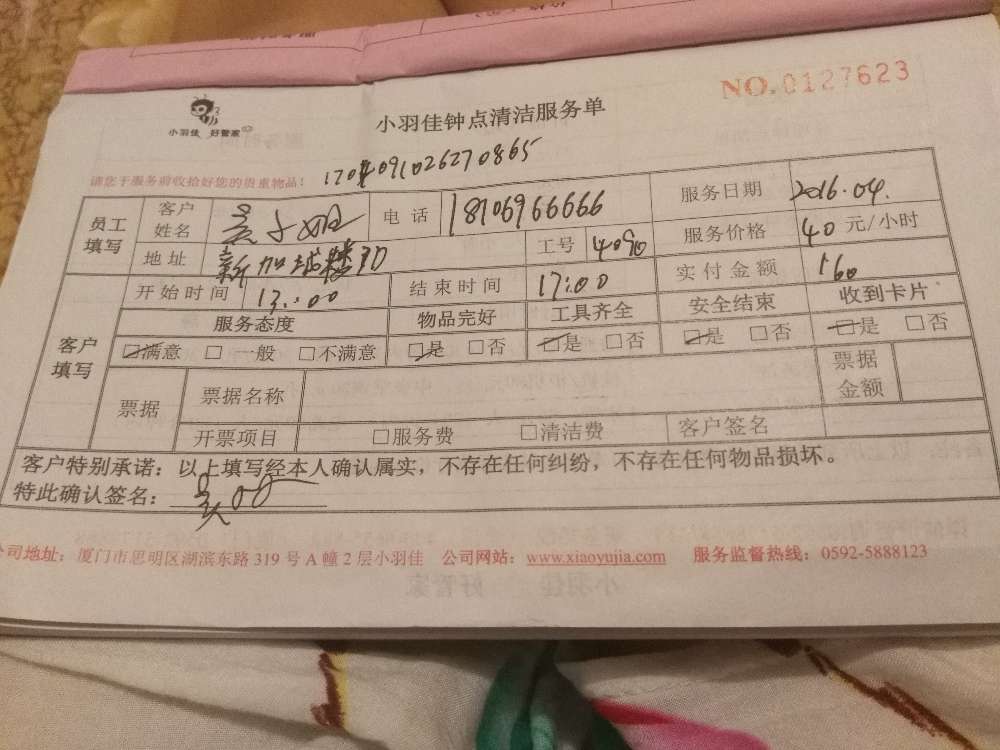 NO.0127623
小羽佳 好管家
小羽佳钟点清洁服务单
请您于服务前收拾好您的贵重物品！
员工填写 客户姓名 电话 18106966666 服务日期 2016.04.
地址 新加坡 工号 服务价格 40 元/小时
客户填写 开始时间 13:00 结束时间 17:00 实付金额 160
服务态度 物品完好 工具齐全 安全结束 收到卡片
☑满意 □一般 □不满意 ☑是 □否 ☑是 □否 ☑是 □否 ☑是 □否
票据 票据名称 票据金额
开票项目 □服务费 □清洁费 客户签名
客户特别承诺：以上填写经本人确认属实，不存在任何纠纷，不存在任何物品损坏。
特此确认签名：
公司地址：厦门市思明区湖滨东路 319 号 A 幢 2 层小羽佳 公司网站：www.xiaoyujia.com 服务监督热线：0592-5888123